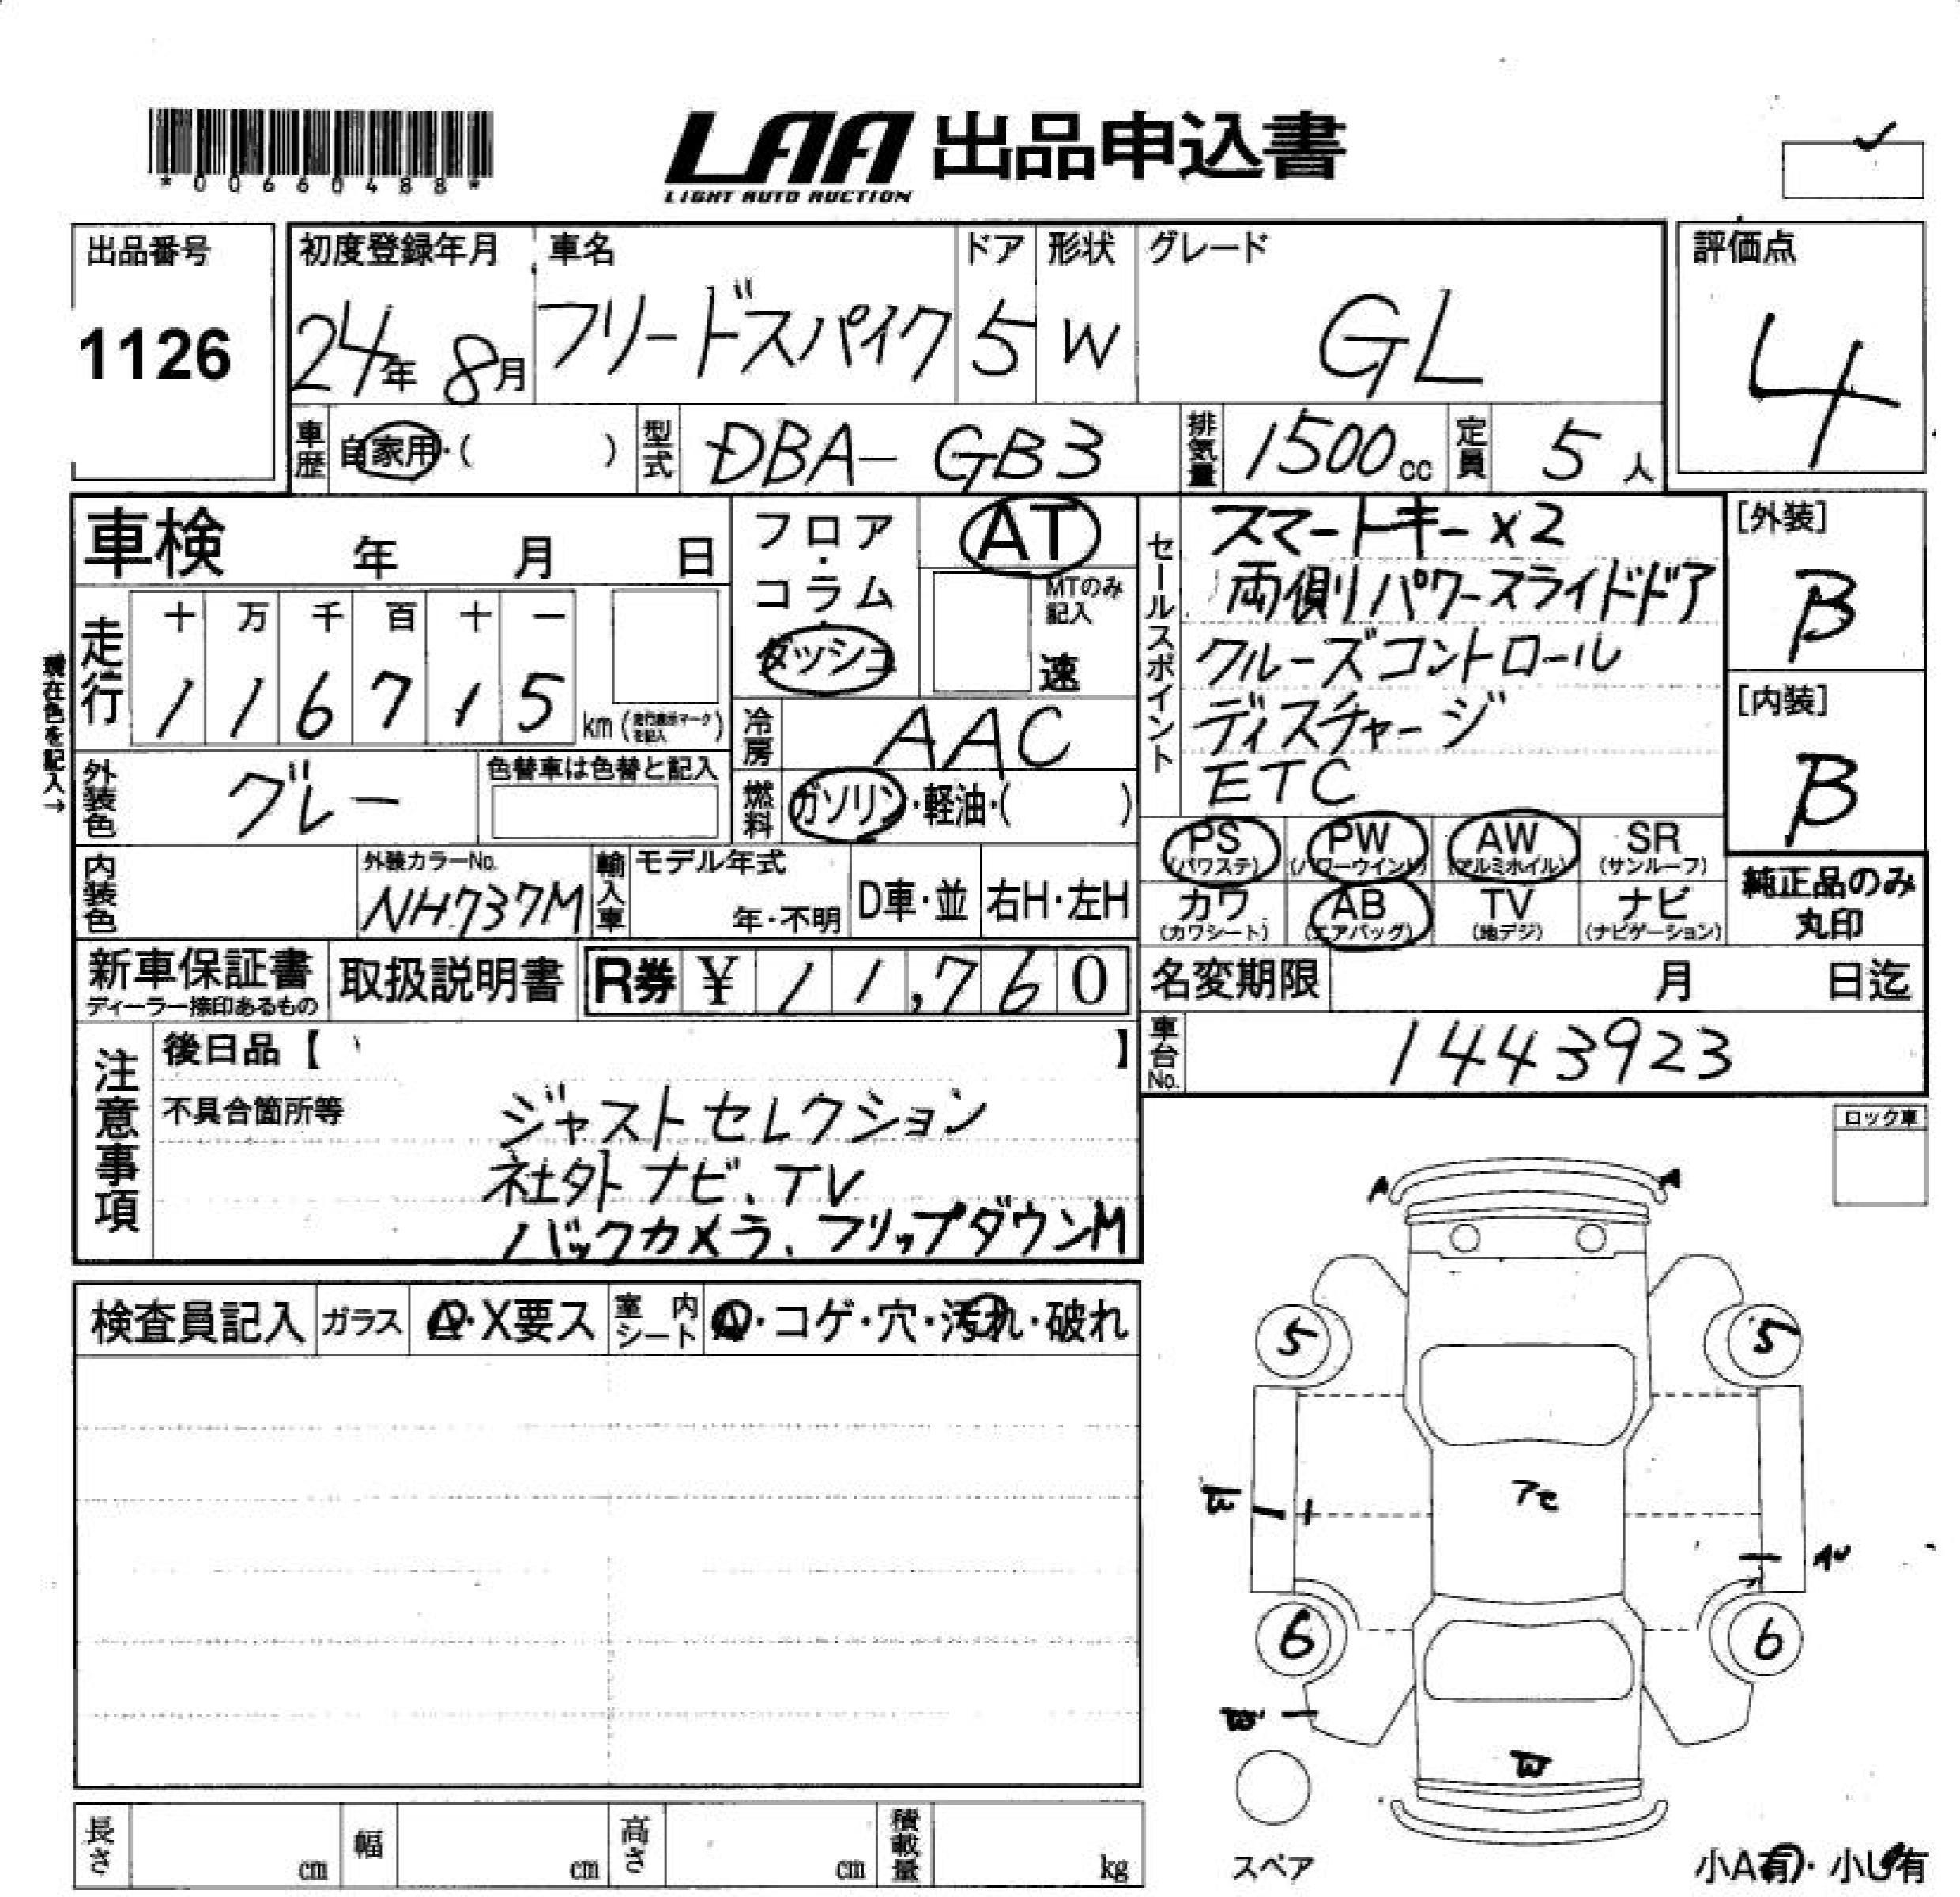 *00660488*
LAA 出品申込書
LIGHT AUTO AUCTION
出品番号
1126
初度登録年月
24年 8月
車名
フリードスパイク
ドア
5
形状
W
グレード
GL
評価点
4
車歴
自家用・( )
型式
DBA-GB3
排気量
1500cc
定員
5人
車検 年 月 日
フロア・コラム・ダッシュ
AT
MTのみ記入
速
セールスポイント
スマートキー×2
両側パワースライドドア
クルーズコントロール
ディスチャージ
ETC
[外装]
B
[内装]
B
現在色を記入→
走行
十 万 千 百 十 一
1 1 6 7 1 5 km (走行表示マークを記入)
冷房
AAC
外装色
グレー
色替車は色替と記入
燃料
ガソリン・軽油・( )
内装色
外装カラーNo.
NH737M
輸入車
モデル年式
年・不明
D車・並
右H・左H
PS (パワステ)
PW (パワーウインド)
AW (アルミホイル)
SR (サンルーフ)
カワ (カワシート)
AB (エアバッグ)
TV (地デジ)
ナビ (ナビゲーション)
純正品のみ丸印
新車保証書
ディーラー捺印あるもの
取扱説明書
R券 ¥ 11,760
名変期限 月 日迄
車台No.
1443923
注意事項
後日品【 】
不具合箇所等
ジャストセレクション
社外ナビ、TV
バックカメラ、フリップダウンM
ロック車
A A
検査員記入
ガラス
A・X要ス
室内シート
A・コゲ・穴・汚れ・破れ
5 5
W
6 6
W
W
スペア
小A有・小U有
長さ cm
幅 cm
高さ cm
積載量 kg